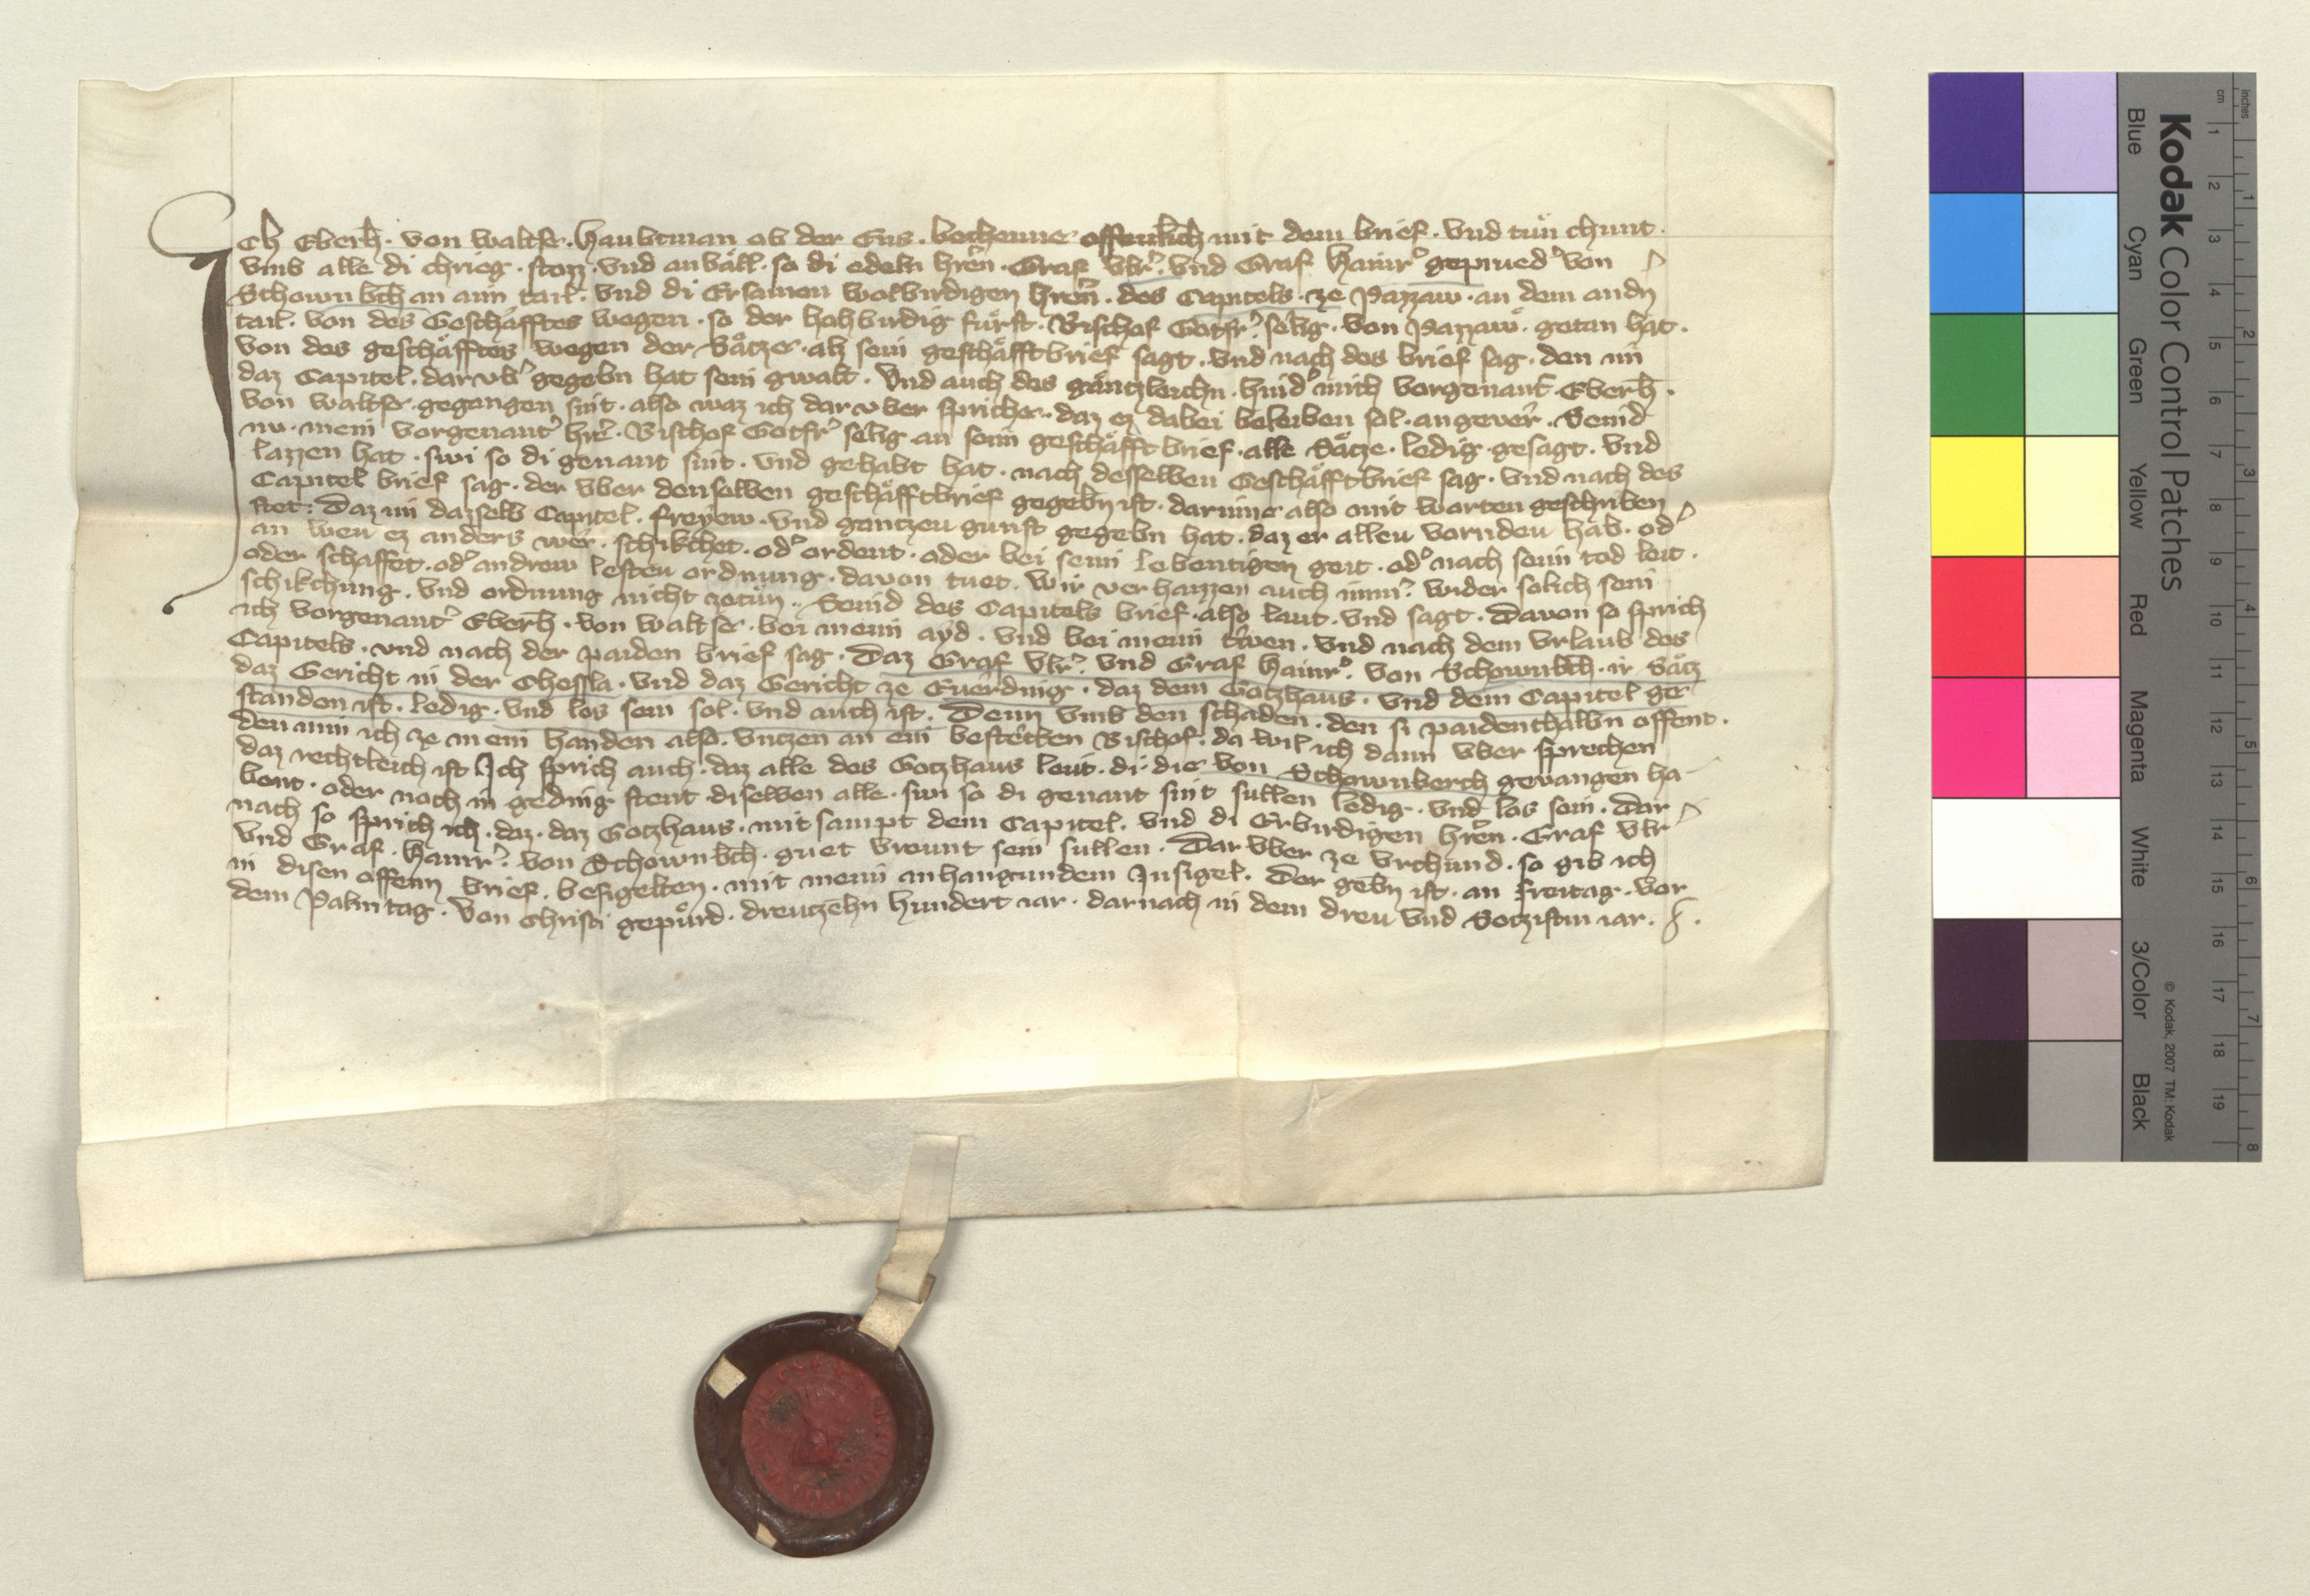 Ich Eberh. von Waltse. Haubtman ob der Ens. bechenne offenlich mit dem brief. vnd tůn chunt.
vmb alle di chrieg. stozz. vnd anvåll. so di edeln hren. Graf Vlr. vnd Graf Hainr. geprued von
Schownbch an aim tail. vnd di Ersamen wolbirdigen hren. des Capitels. ze Pazzaw. an dem andn
tail. von des Geschåfftes wegen. so der hohbirdig fůrst. Bischof Gotfr. selig. von Pazzaw. getan hat.
von des geschåfftes wegen der Såtze. alz sein geschåfftbrief sagt. vnd nach des brief sag. den im
daz Capitel. darvb gegebn hat sein gwalt. Vnd auch des gåntzleichn. hind mich vorgenant. Eberh.
von Waltse. gegangen sint. also waz ich dar vber spriche. daz ez dabei beleiben sol. angever. Seind
nv. mein vorgenant hre. Bischof Gotfr selig an seim geschåfft brief. alle Såtze. ledig. gesagt. vnd
lazzen hat. swi so di genant sint. vnd gehabt hat. nach desselben Geschåfftbrief sag. vnd nach des
Capitel brief sag. der vber denselben geschåfftbrief gegebn ist. darinne also mit worten geschriben
stet: Daz im dazselb Capitel. freyew. vnd gantzen gunst gegebn hat. daz er allen vornden hab. od
an wen ez anders wer. schikchet. od ordent. oder bei seim lebentigen geit. od nach seim tod leit.
oder schaffet. od andrew lesten ordnung. davon tuet. Wir verhaizzen auch nimr. wider solich sein
schikchung. vnd ordnung nicht zetůn. Seind des Capitels brief. also laut. vnd sagt. Davon so sprich
ich vorgenant Eberh. von Waltse. bei meim ayd. vnd bei meim trwen. vnd nach dem vrlaub des
Capitels. vnd nach der paiden brief sag. Daz Graf Vlr. vnd Graf Hainr. von Schownbch. ir Såtz
daz Gericht in der Chessla. vnd daz Gericht ze Euerding. daz dem Gotzhaus. vnd dem Capitel ge
standen ist. ledig. vnd los sein sol. vnd auch ist. Denn vmb den schaden. den si paidenthalbn offent.
den nim ich ze mein handen also. vntzen an ein bestetten Bischof. da wil ich dann vber sprechen
daz rechtleich ist Ich sprich auch. daz alle des Gotzhaus leut. di die von Schownberch gevangen ha-
bent. oder noch in geding stent diselben alle. swi so di genant sint sullen ledig. vnd los sein. Dar
nach so sprich ich. daz. daz Gotzhaus. mitsampt dem Capitel. vnd di Erbirdigen hren. Graf Vlr
vnd Graf. Hainr. von Schownbch. guet vreunt sein sullen. Dar vber ze vrchund. so gib ich
in disen offenn brief. besigelten. mit meim anhangundem Insigel. Der gebn ist. an freitag. vor
dem Palmtag. Von Christi gepůrd. dreutzehn hundert iar. darnach in dem dreu vnd Setzistm iar.
Kodak Color Control Patches
Blue Cyan Green Yellow Red Magenta White 3/Color Black
© Kodak, 2007 TM: Kodak
cm 1 2 3 4 5 6 7 8 9 10 11 12 13 14 15 16 17 18 19
inches 1 2 3 4 5 6 7 8